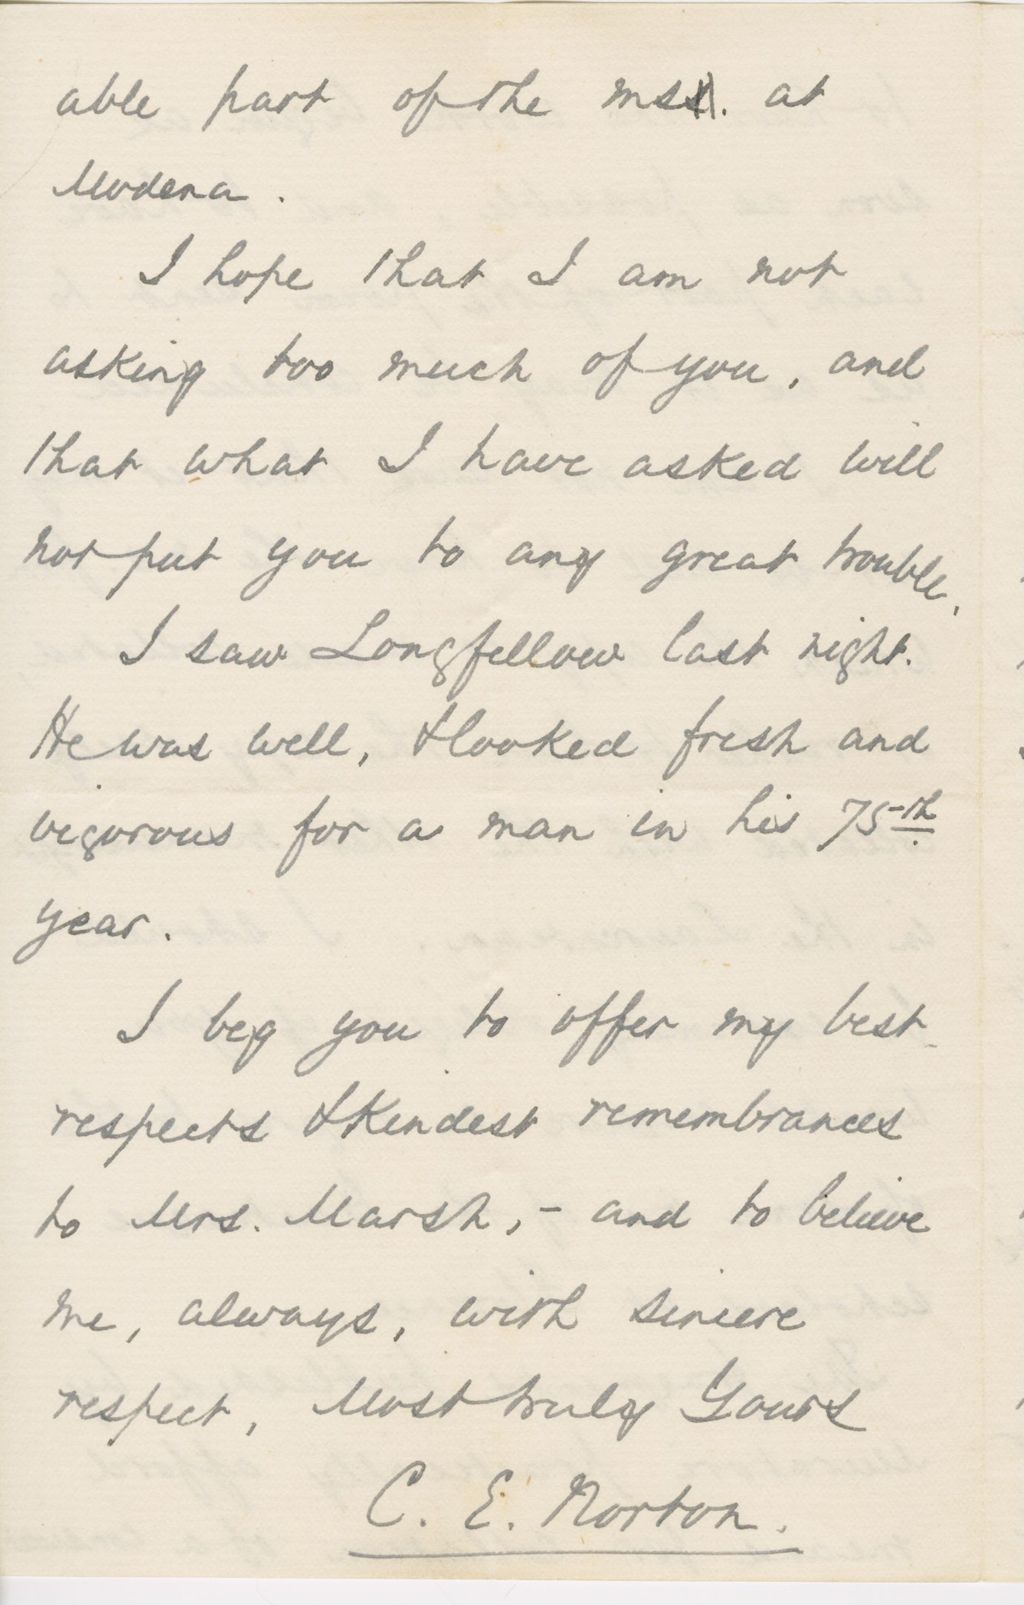 able part of the mss. at
Modena.
I hope that I am not
asking too much of you, and
that what I have asked will
not put you to any great trouble.
I saw Longfellow last night.
He was well, & looked fresh and
vigorous for a man in his 75th
year.
I beg you to offer my best
respects & kindest remembrances
to Mrs. Marsh, - and to believe
me, always, with sincere
respect, Most truly Yours
C. E. Norton.